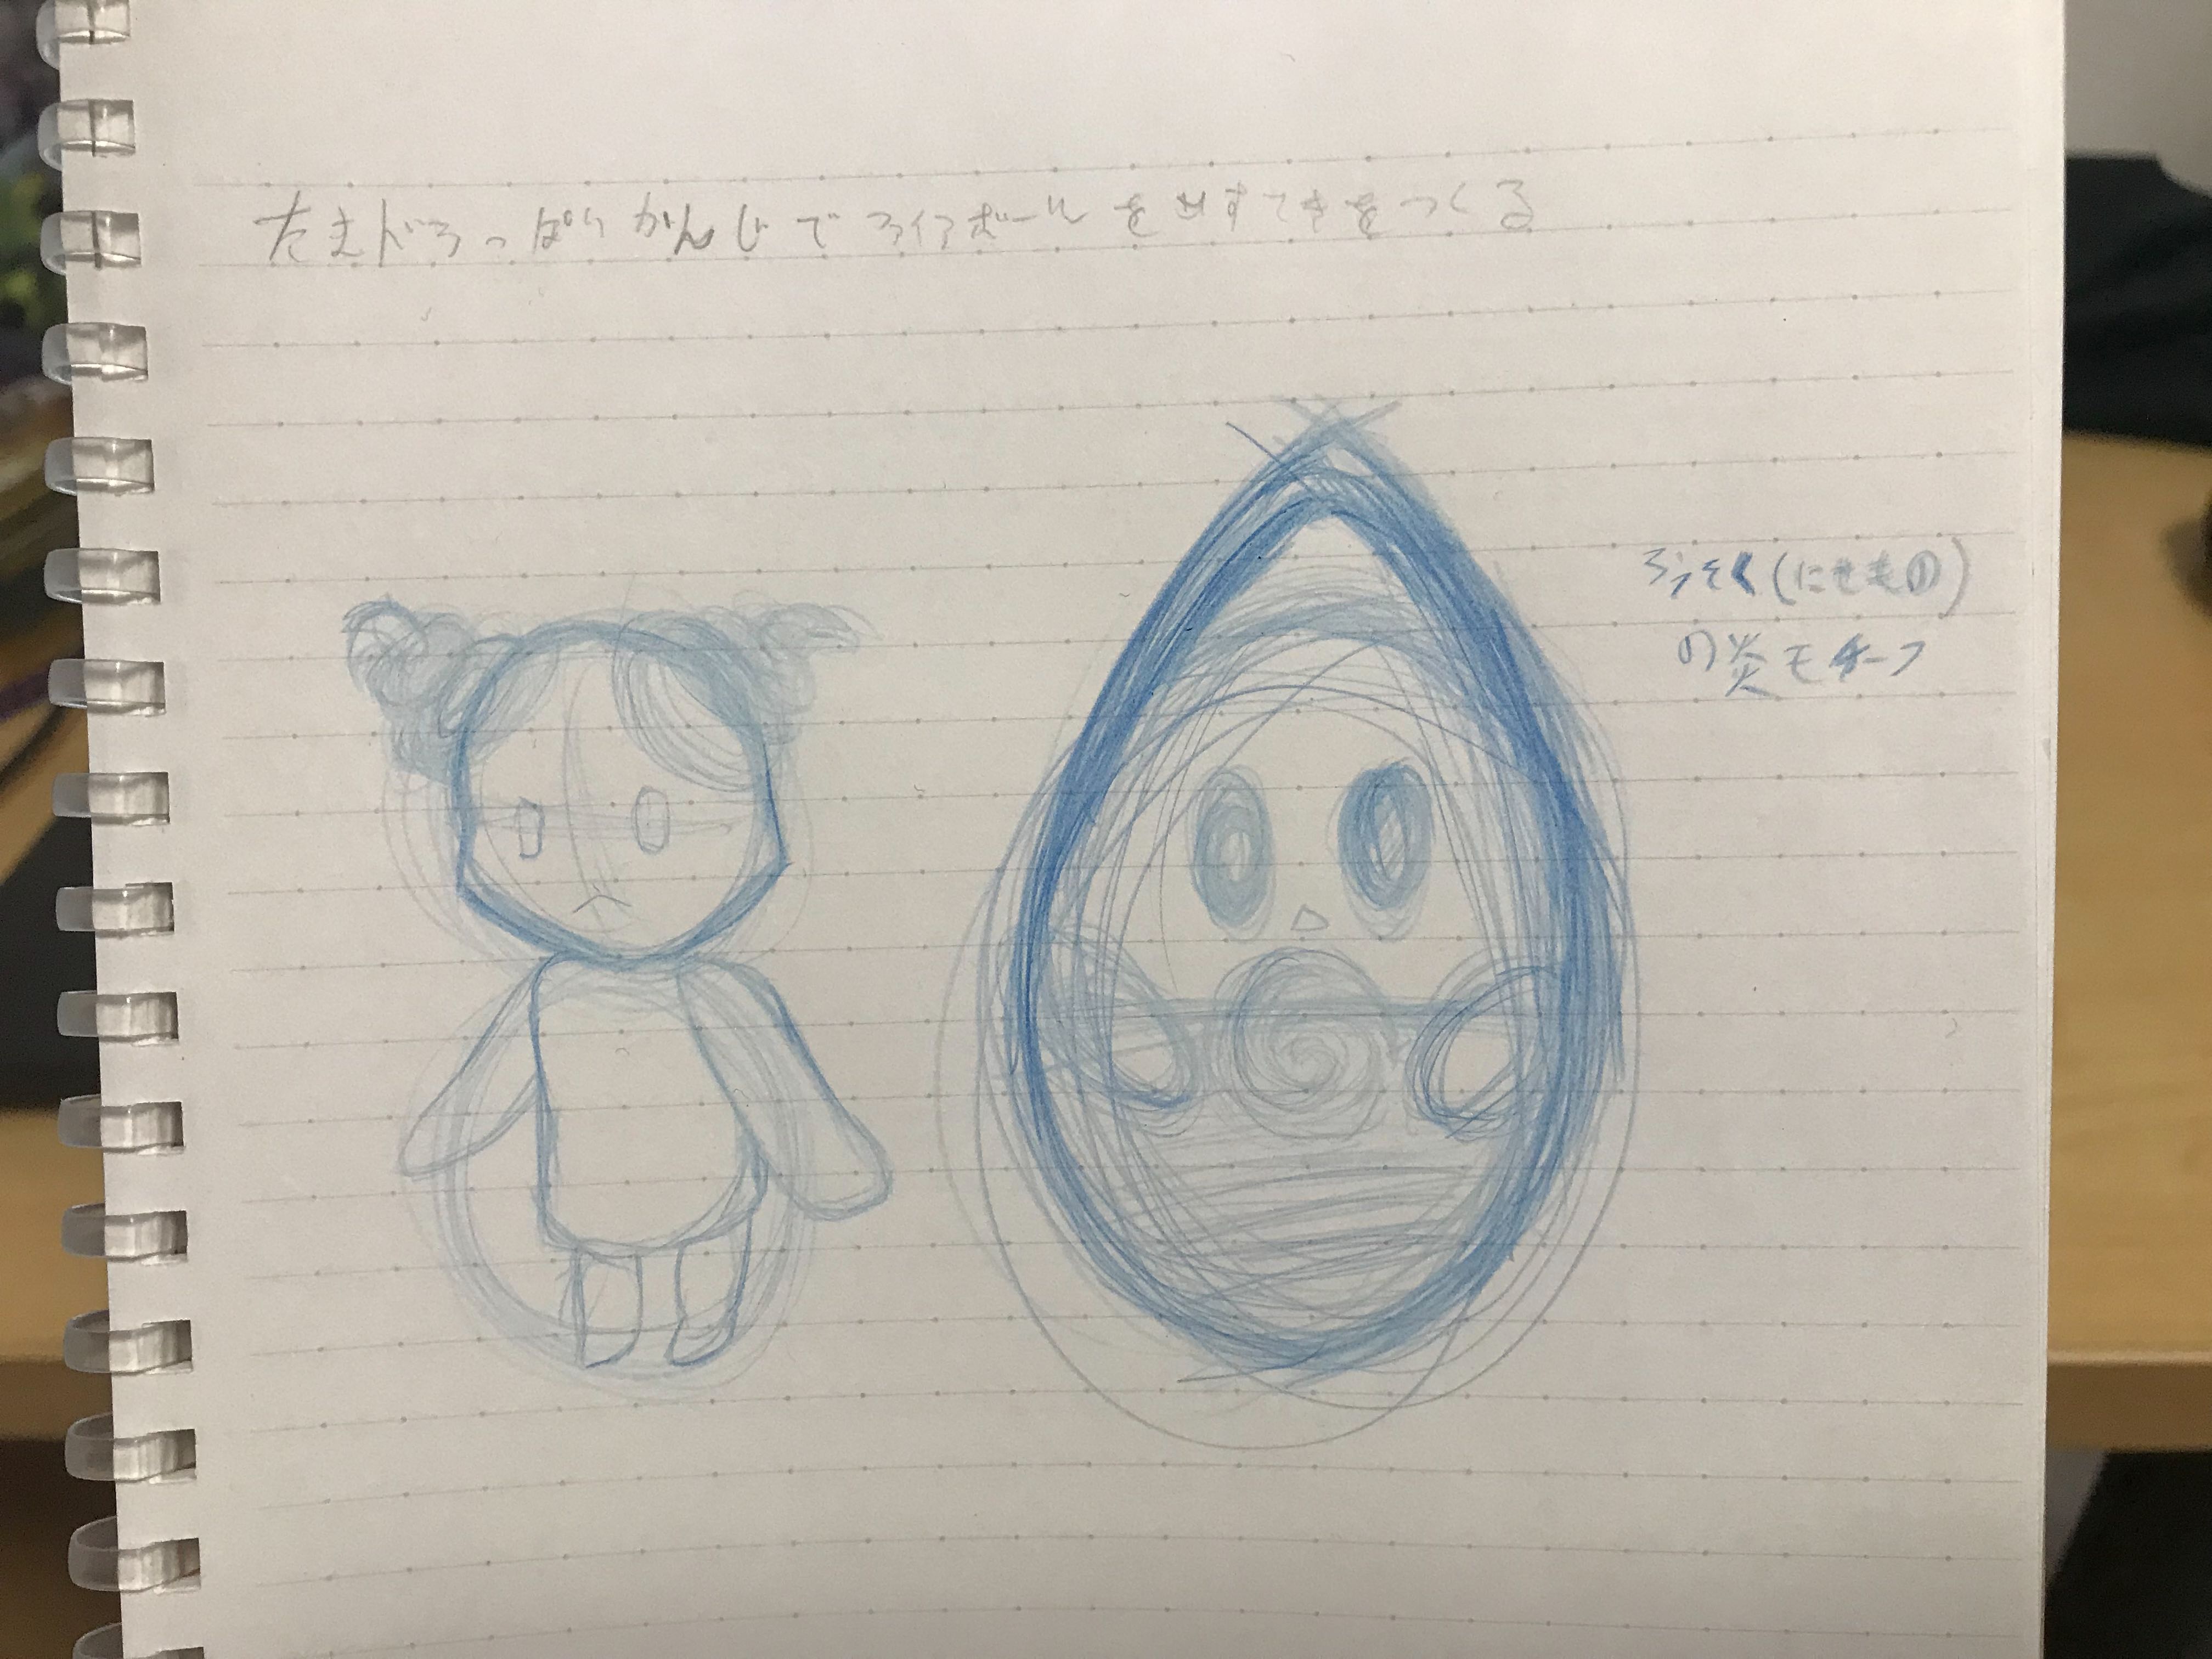 たまドろっぱいかんじでファイアボールを出すてきをつくる
ろうそく(にせもの)
の炎モチーフ